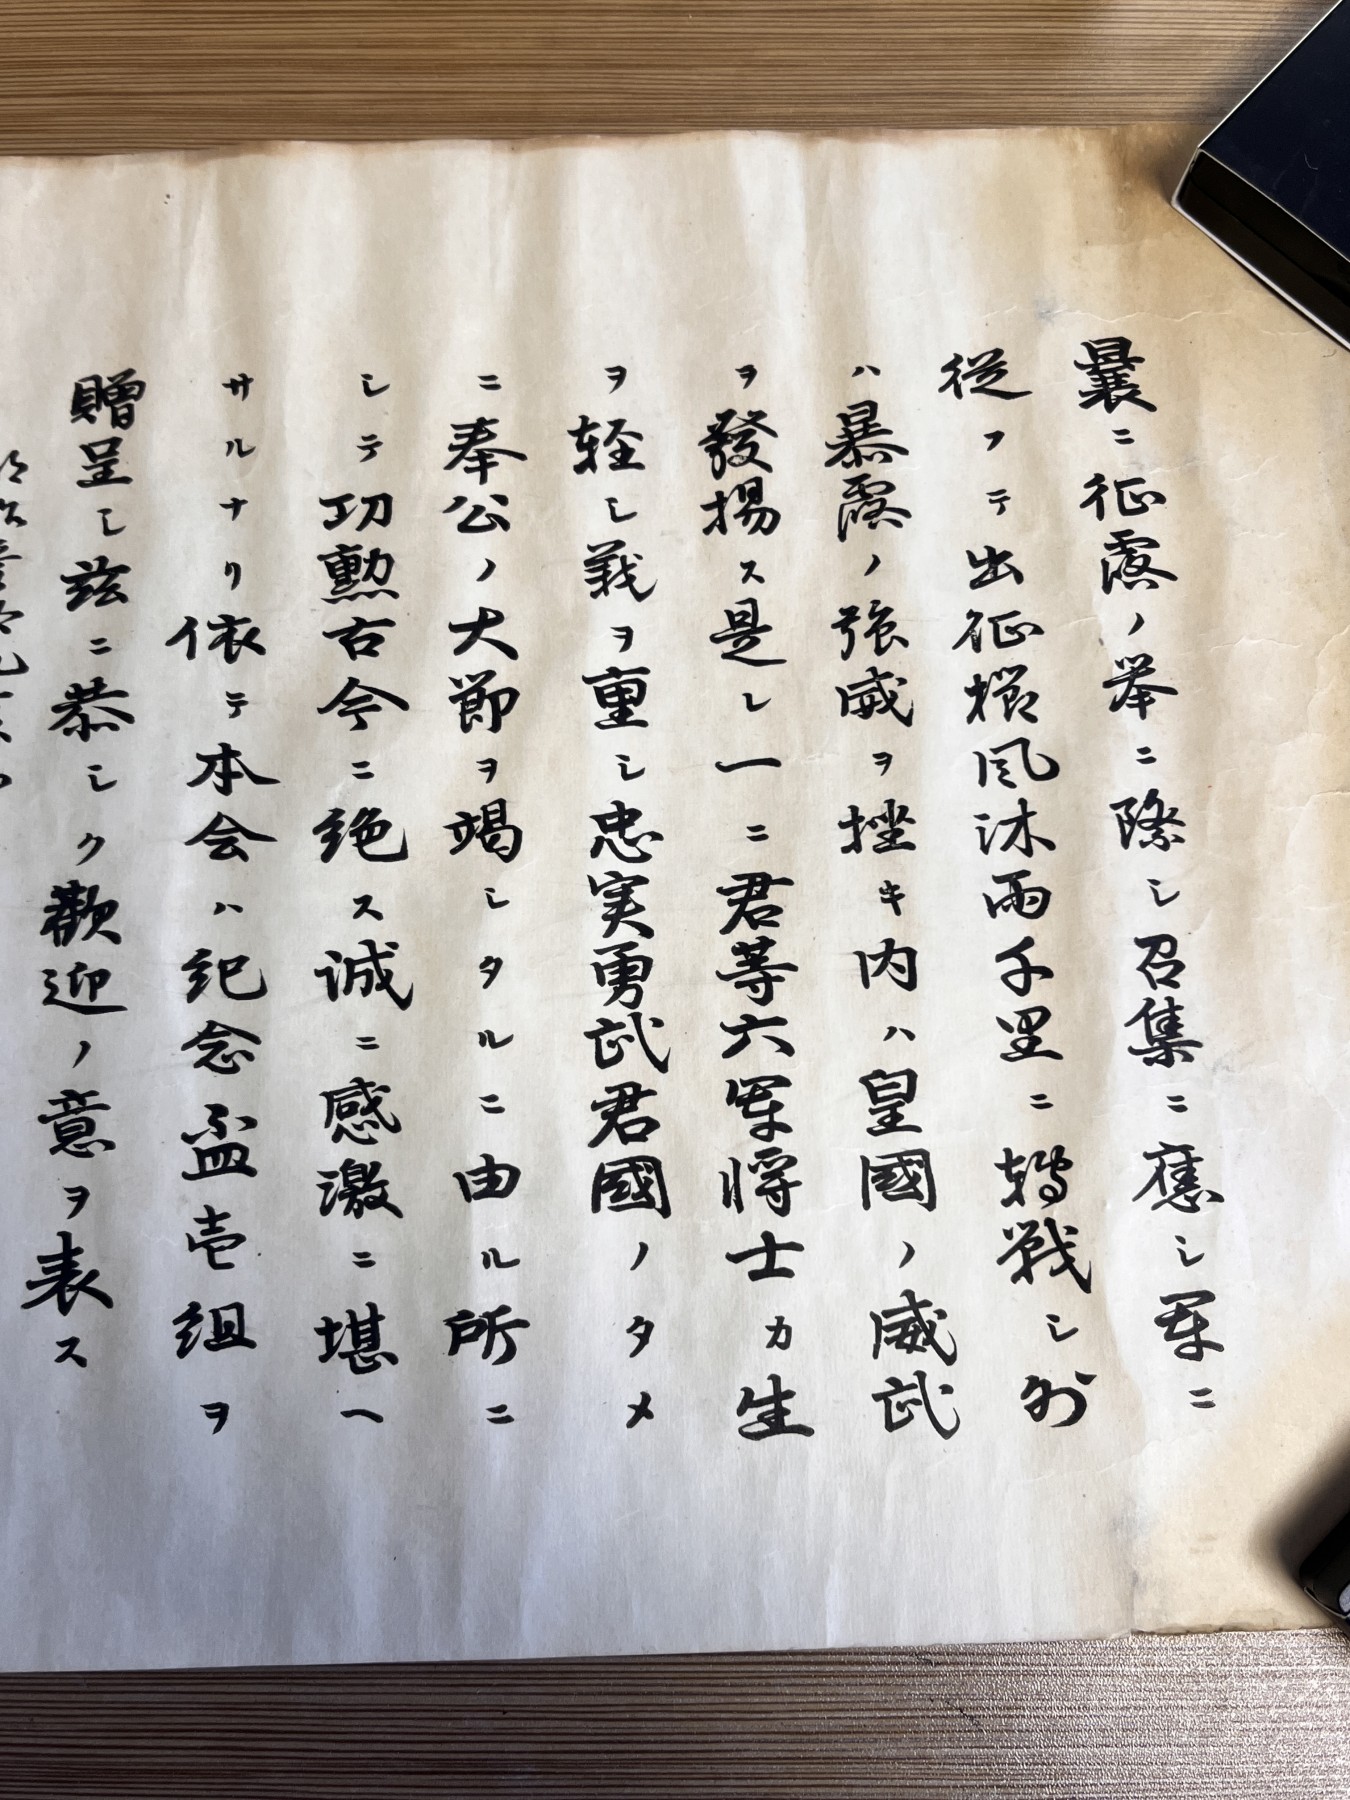 曩ニ征露ノ挙ニ際シ召集ニ應シ軍ニ
従フテ出征櫛風沐雨千里ニ轉戦シ外
ハ暴露ノ強威ヲ挫キ内ハ皇國ノ威武
ヲ發揚ス是レ一ニ君等六軍将士カ生
ヲ軽シ義ヲ重シ忠実勇武君國ノタメ
ニ奉公ノ大節ヲ竭シタルニ由ル所ニ
シテ功勲古今ニ絶ス誠ニ感激ニ堪ヘ
サルナリ依テ本会ハ紀念盃壱組ヲ
贈呈シ茲ニ恭シク歓迎ノ意ヲ表ス